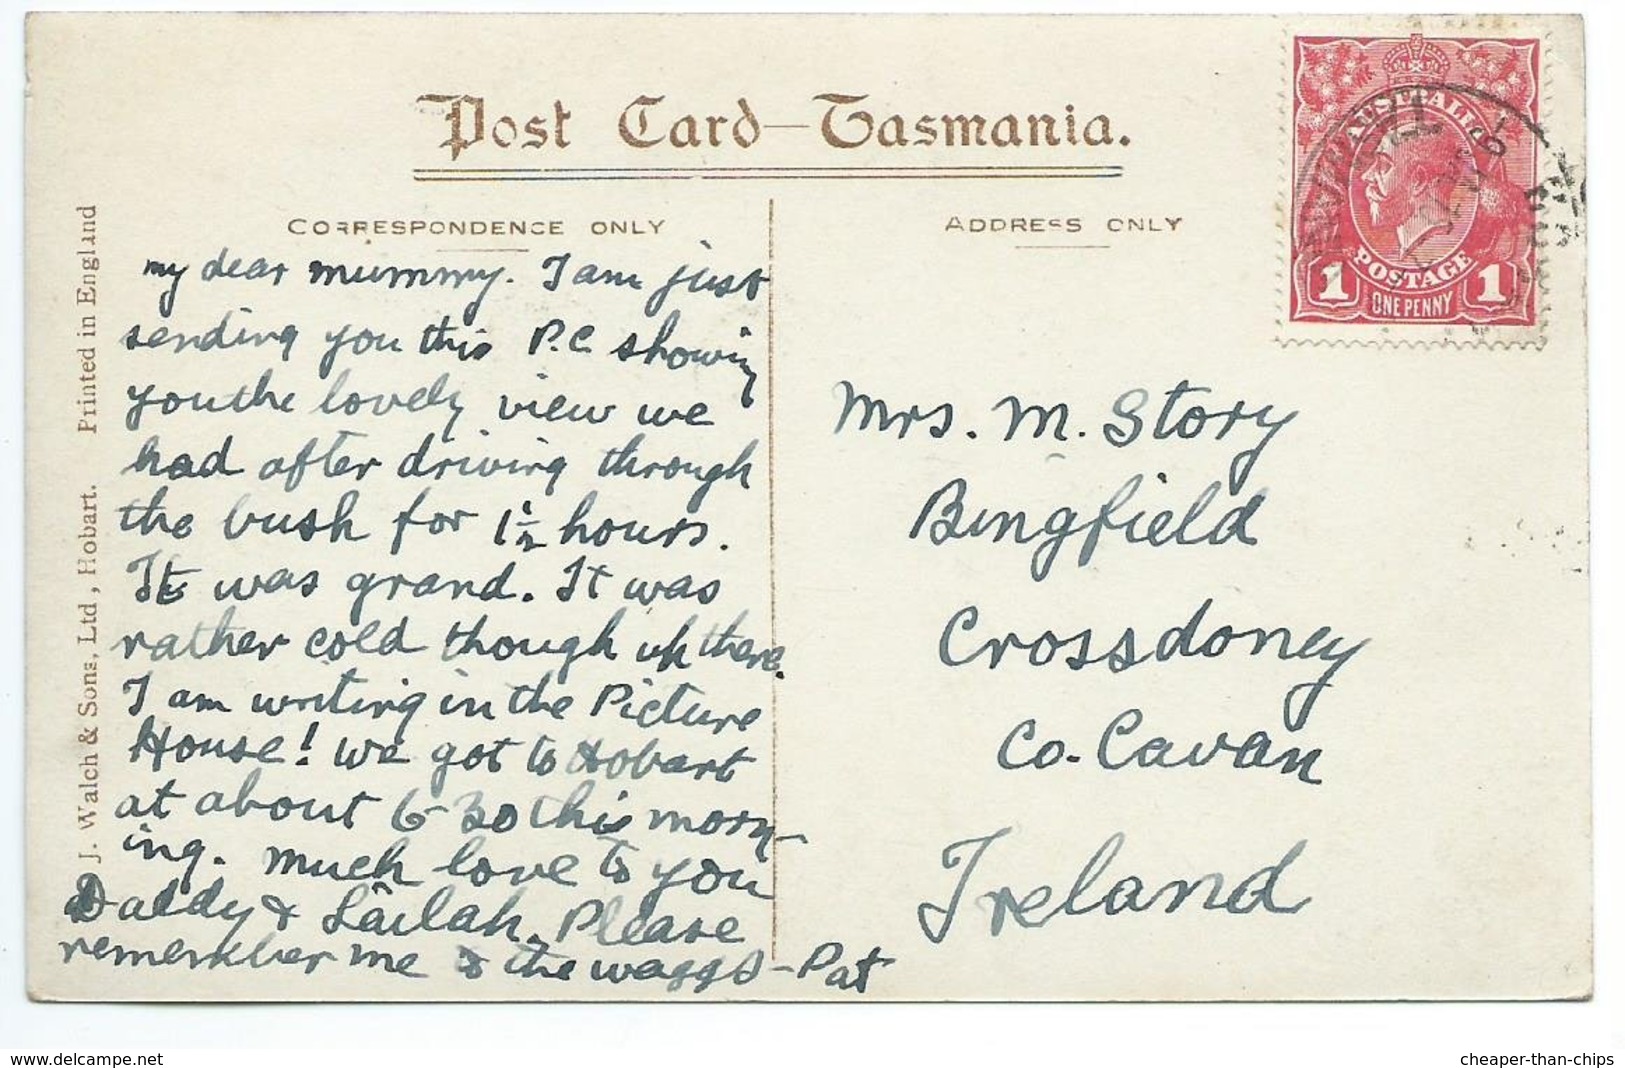 Post Card—Tasmania.
CORRESPONDENCE ONLY
ADDRESS ONLY
AUSTRALIA
POSTAGE
1 ONE PENNY 1
J. Walch & Sons, Ltd, Hobart. Printed in England
my dear mummy. I am just
sending you this P.C. showing
you the lovely view we
had after driving through
the bush for 1½ hours.
It was grand. It was
rather cold though up there.
I am writing in the Picture
House! We got to Hobart
at about 6-30 this morn-
ing. Much love to you
Daddy & Lailah. Please
remember me to the waggs - Pat
Mrs. M. Story
Bingfield
Crossdoney
Co. Cavan
Ireland
www.delcampe.net
cheaper-than-chips